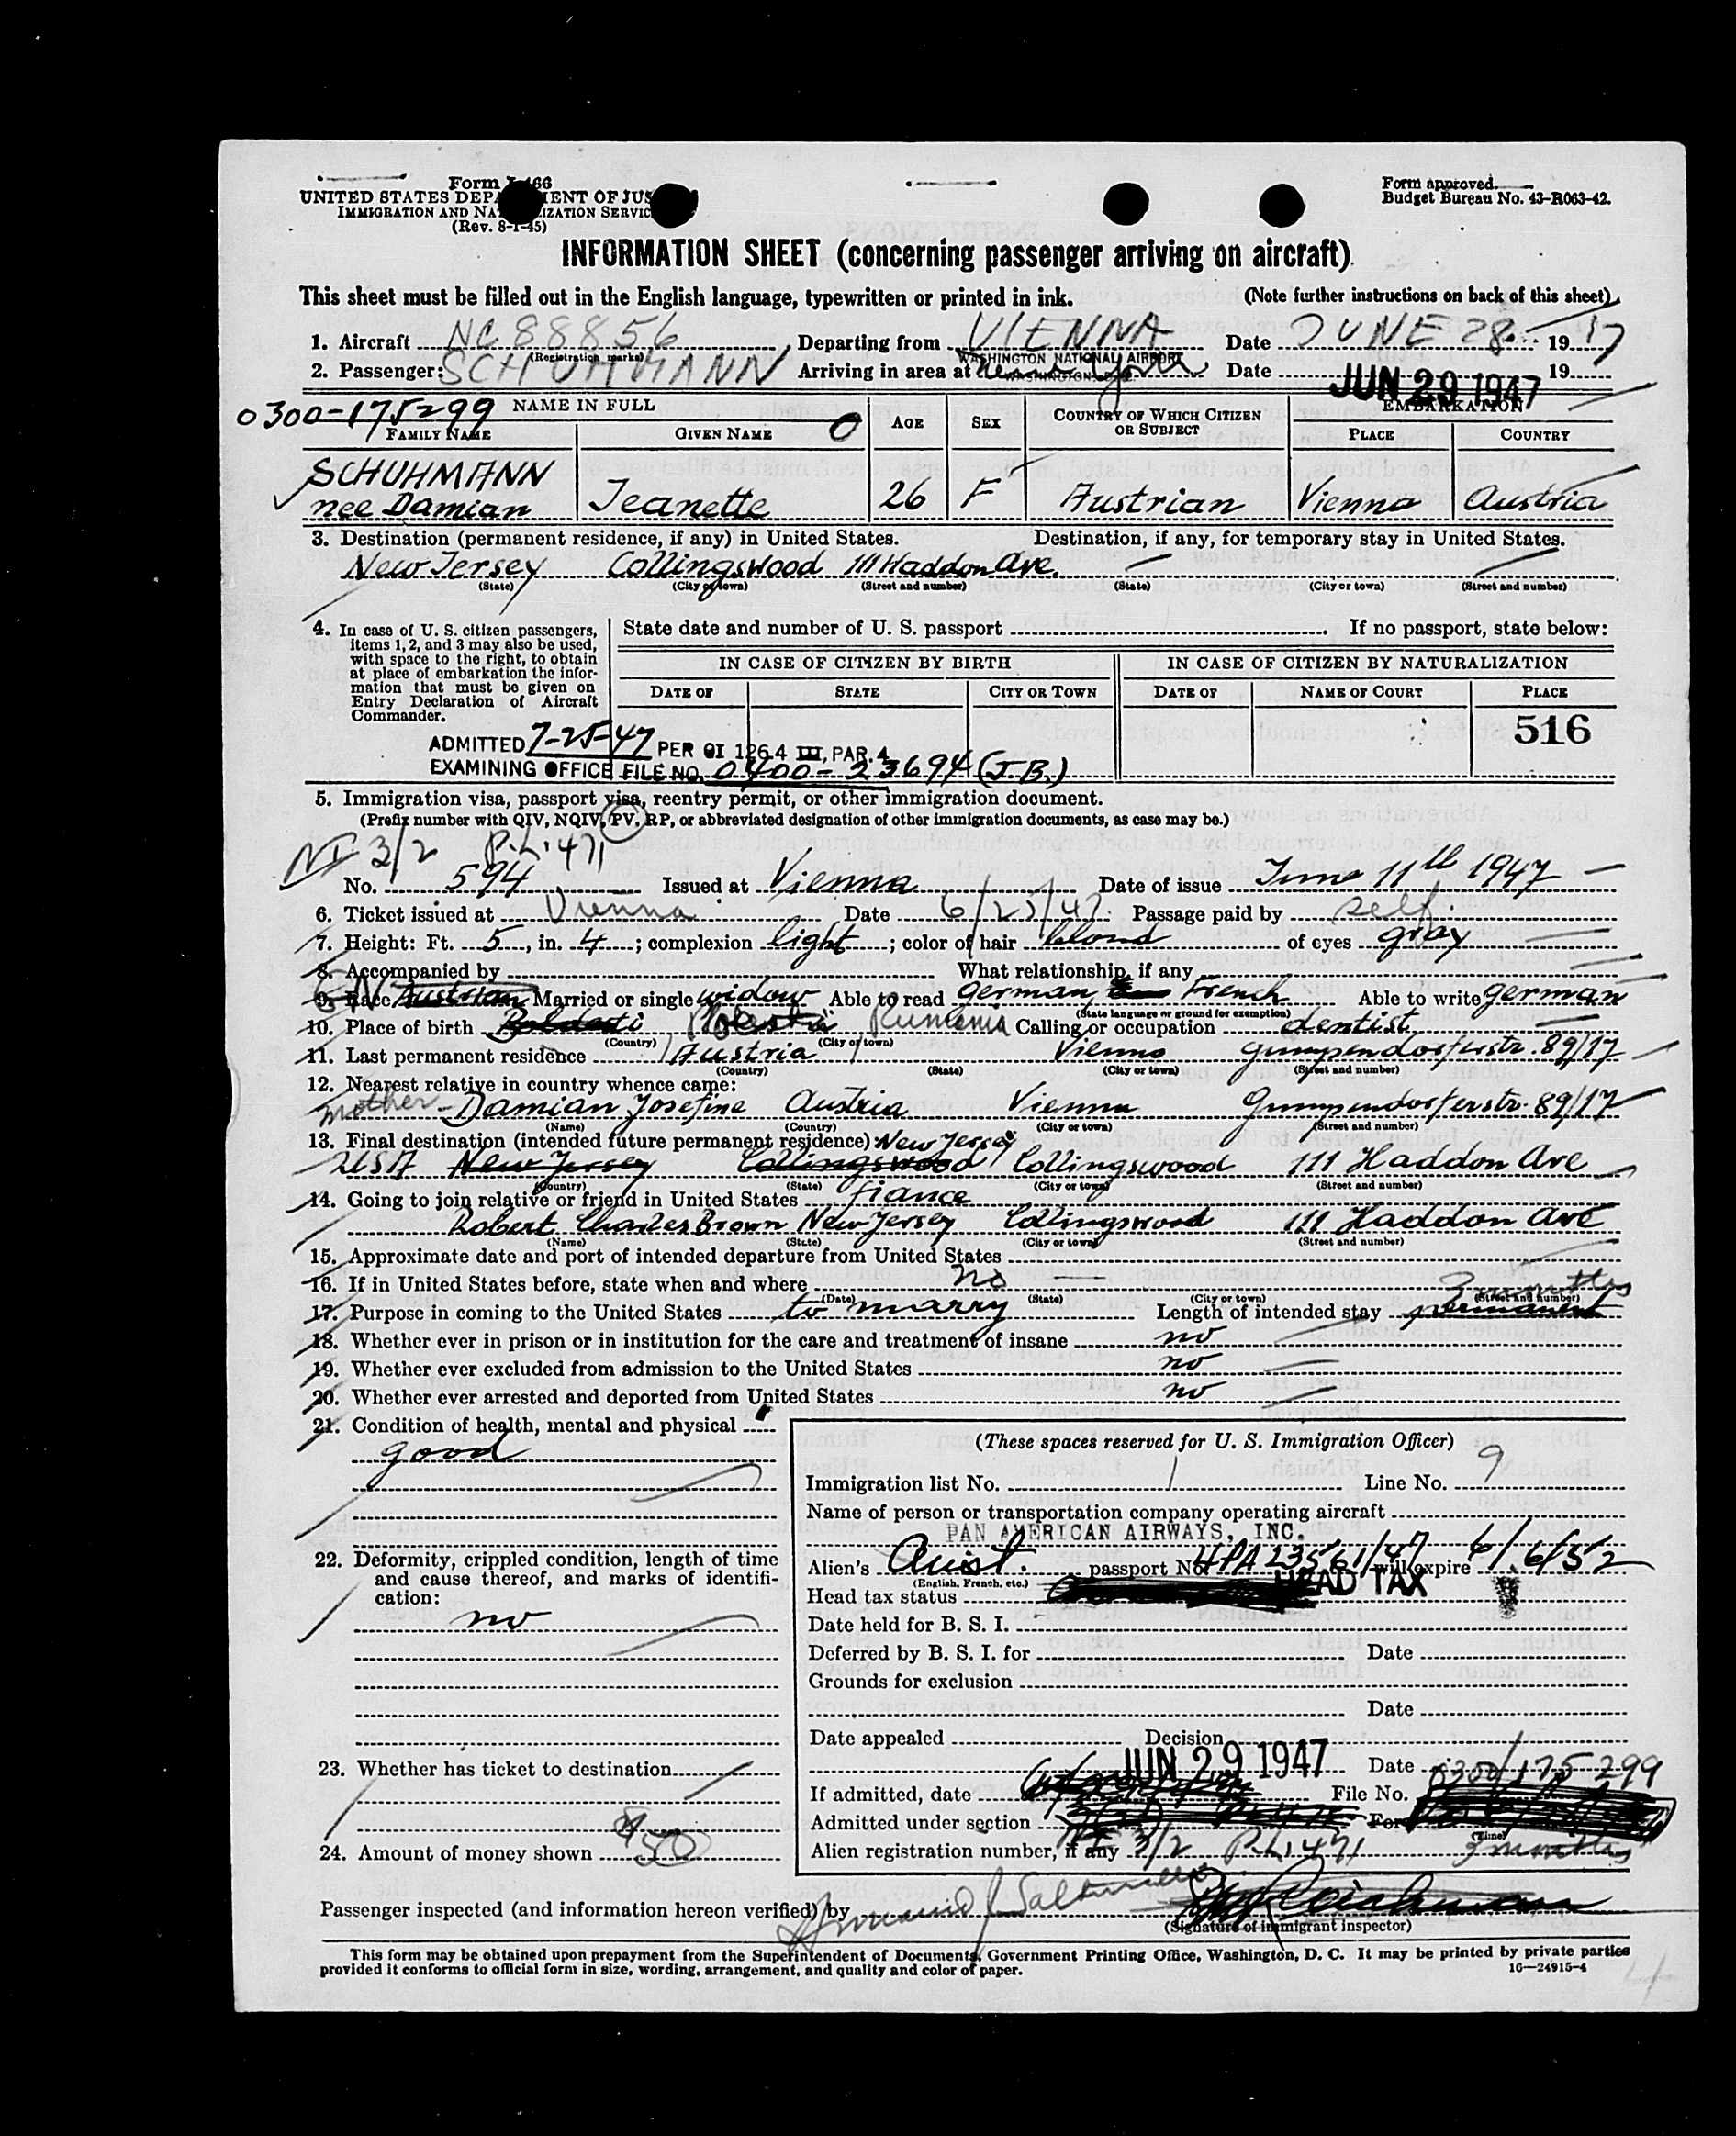 Form I-466
UNITED STATES DEPARTMENT OF JUSTICE
IMMIGRATION AND NATURALIZATION SERVICE
(Rev. 8-1-45)
Form approved.
Budget Bureau No. 43-R063-42.
INFORMATION SHEET (concerning passenger arriving on aircraft)
This sheet must be filled out in the English language, typewritten or printed in ink. (Note further instructions on back of this sheet)
1. Aircraft NC 88856 Departing from VIENNA Date JUNE 28 1947
(Registration marks)
2. Passenger: SCHUHMANN Arriving in area at WASHINGTON NATIONAL AIRPORT New York Date JUN 29 1947 19
0300-175299 NAME IN FULL O AGE SEX COUNTRY OF WHICH CITIZEN OR SUBJECT EMBARKATION
FAMILY NAME GIVEN NAME PLACE COUNTRY
SCHUHMANN
nee Damian Jeanette 26 F Austrian Vienna Austria
3. Destination (permanent residence, if any) in United States. Destination, if any, for temporary stay in United States.
New Jersey Collingswood 111 Haddon Ave.
(State) (City or town) (Street and number) (State) (City or town) (Street and number)
4. In case of U. S. citizen passengers, items 1, 2, and 3 may also be used, with space to the right, to obtain at place of embarkation the information that must be given on Entry Declaration of Aircraft Commander.
State date and number of U. S. passport If no passport, state below:
IN CASE OF CITIZEN BY BIRTH IN CASE OF CITIZEN BY NATURALIZATION
DATE OF STATE CITY OR TOWN DATE OF NAME OF COURT PLACE
516
ADMITTED 7-25-47 PER OI 126.4 III, PAR. 4
EXAMINING OFFICE FILE NO. 0400-23694 (J.B.)
5. Immigration visa, passport visa, reentry permit, or other immigration document.
(Prefix number with QIV, NQIV, PV, RP, or abbreviated designation of other immigration documents, as case may be.)
NI 3/2 P.L. 471
No. 594 Issued at Vienna Date of issue June 11th 1947
6. Ticket issued at Vienna Date 6/25/47 Passage paid by self
7. Height: Ft. 5, in. 4; complexion light; color of hair blond of eyes gray
8. Accompanied by What relationship, if any
9. Race Austrian Married or single widow Able to read german, French Able to write german
(State language or ground for exemption)
10. Place of birth Rumania Calling or occupation dentist
(Country) (City or town)
11. Last permanent residence Austria Vienna Gumpendorferstr. 89/17
(Country) (State) (City or town) (Street and number)
12. Nearest relative in country whence came:
mother - Damian Josefine Austria Vienna Gumpendorferstr. 89/17
(Name) (Country) (City or town) (Street and number)
13. Final destination (intended future permanent residence): New Jersey
USA New Jersey Collingswood Collingswood 111 Haddon Ave
(Country) (State) (City or town) (Street and number)
14. Going to join relative or friend in United States fiance
Robert Charles Brown New Jersey Collingswood 111 Haddon Ave
(Name) (State) (City or town) (Street and number)
15. Approximate date and port of intended departure from United States
16. If in United States before, state when and where no
(Date) (State) (City or town) (Street and number)
3 months
17. Purpose in coming to the United States to marry Length of intended stay permanent
18. Whether ever in prison or in institution for the care and treatment of insane no
19. Whether ever excluded from admission to the United States no
20. Whether ever arrested and deported from United States no
21. Condition of health, mental and physical
good
22. Deformity, crippled condition, length of time and cause thereof, and marks of identification:
no
23. Whether has ticket to destination
24. Amount of money shown $50
(These spaces reserved for U. S. Immigration Officer)
Immigration list No. 1 Line No. 9
Name of person or transportation company operating aircraft
PAN AMERICAN AIRWAYS, INC.
Alien's Aust. passport No. 4PA 23561/47 will expire 6/6/52
(English, French, etc.)
Head tax status HEAD TAX
Date held for B. S. I.
Deferred by B. S. I. for Date
Grounds for exclusion
Date
Date appealed Decision
JUN 29 1947 Date 0300/175 299
If admitted, date File No.
Admitted under section For
(Time)
Alien registration number, if any NI 3/2 P.L. 471 3 months
Passenger inspected (and information hereon verified) by
(Signature of immigrant inspector)
This form may be obtained upon prepayment from the Superintendent of Documents, Government Printing Office, Washington, D. C. It may be printed by private parties
provided it conforms to official form in size, wording, arrangement, and quality and color of paper.
16—24915-4